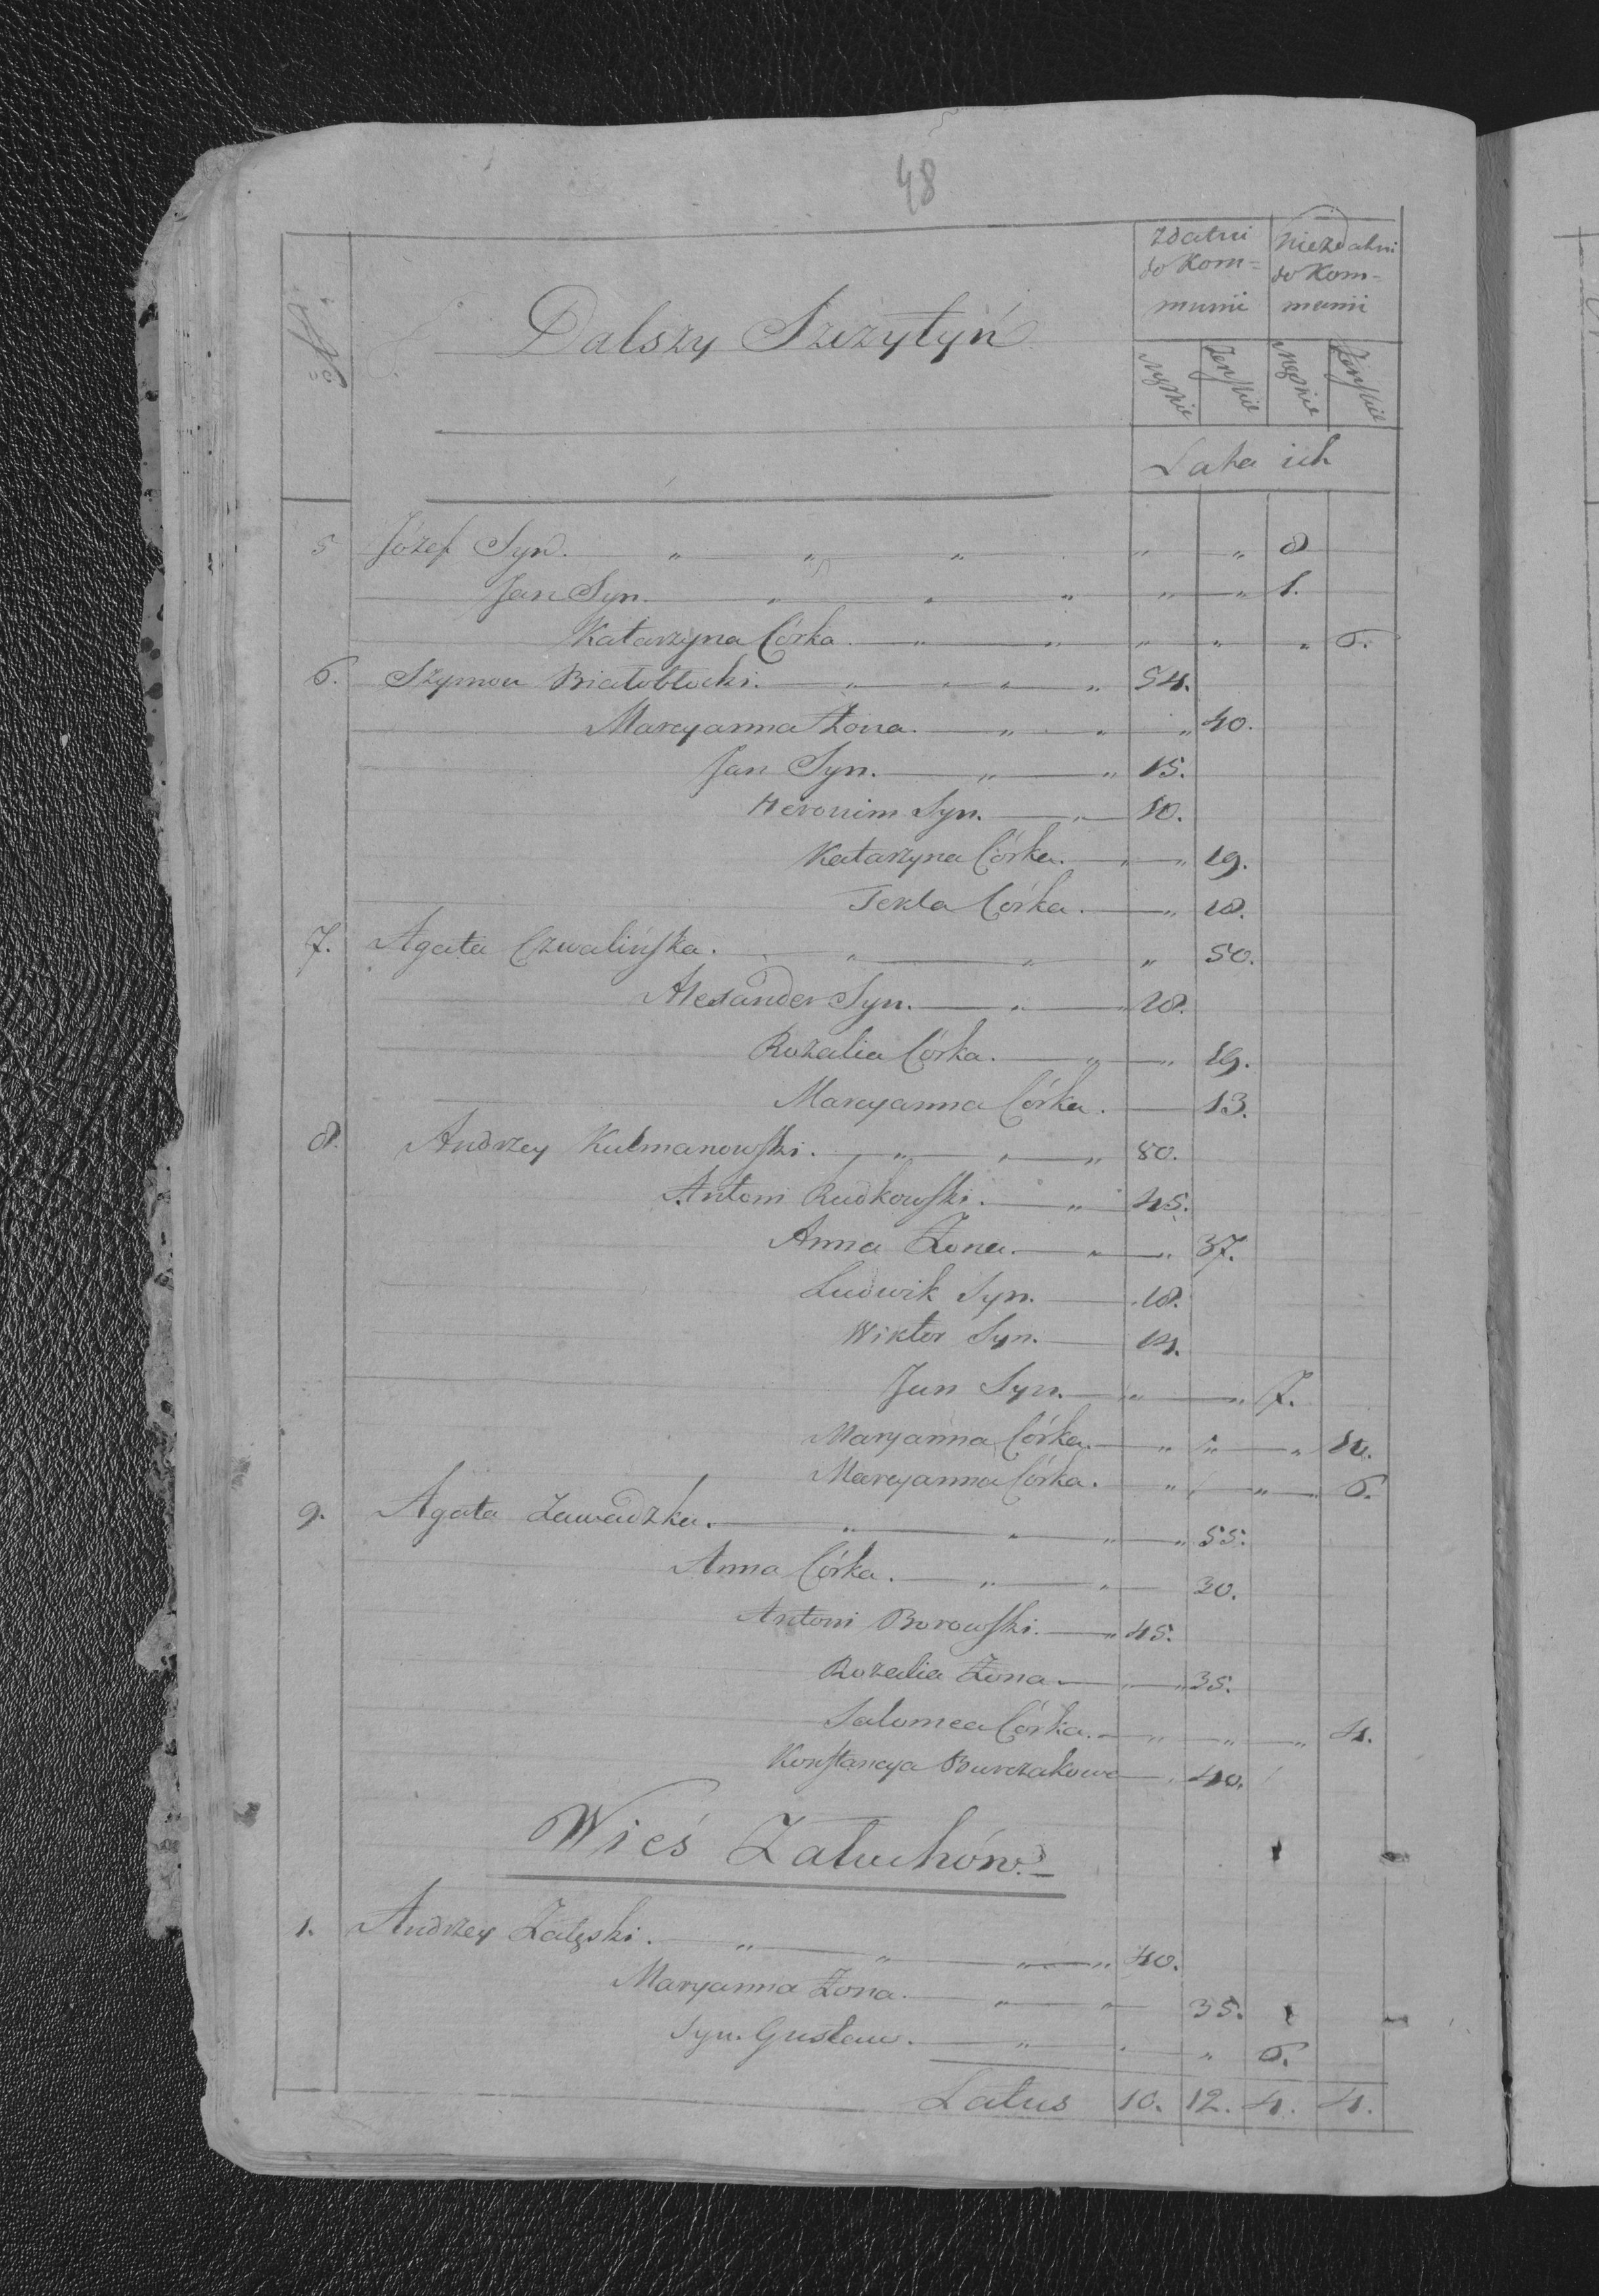 48
№
Dalszy Szczytyń
Zdatni do Kom=munii
Niezdatni do Kom-munii
Męzkie Żeńskie Męzkie Żeńskie
Lata ich
5 Józef Syn. " " " " " 8
Jan Syn. " " " " " 1.
Katarzyna Córka. " " " " " 6.
6. Szymon Białobłocki. " " " " 54.
Maryanna Żona. " " " 40.
Jan Syn. " " 15.
Heronim Syn. " 10.
Katarzyna Córka. " " 19.
Tekla Córka. " 18.
7. Agata Czwalińska. " " " 50.
Alexander Syn. " " 28.
Rozalia Córka. " " 19.
Maryanna Córka. 13.
8. Andrzey Kulmanowski. " " " 80.
Antoni Rudkowski. " 45.
Anna Żona. " " 37.
Ludwik Syn. 18.
Wiktor Syn. 14.
Jan Syn. " " 7.
Maryanna Córka. " " " 10.
Maryanna Córka. " " " 6.
9. Agata Zawadzka. " " " " 55.
Anna Córka. " " 30.
Antoni Borowski. " 45.
Rozalia Żona. " " 35.
Salomea Córka. " " " 4.
Konstancya Burczakowa 40.
Wieś Załuchów.
1. Andrzey Załęski. " " " " 40.
Maryanna Żona. " " 35.
Syn. Gustaw. " " " 6.
Latus 10. 12. 4. 4.